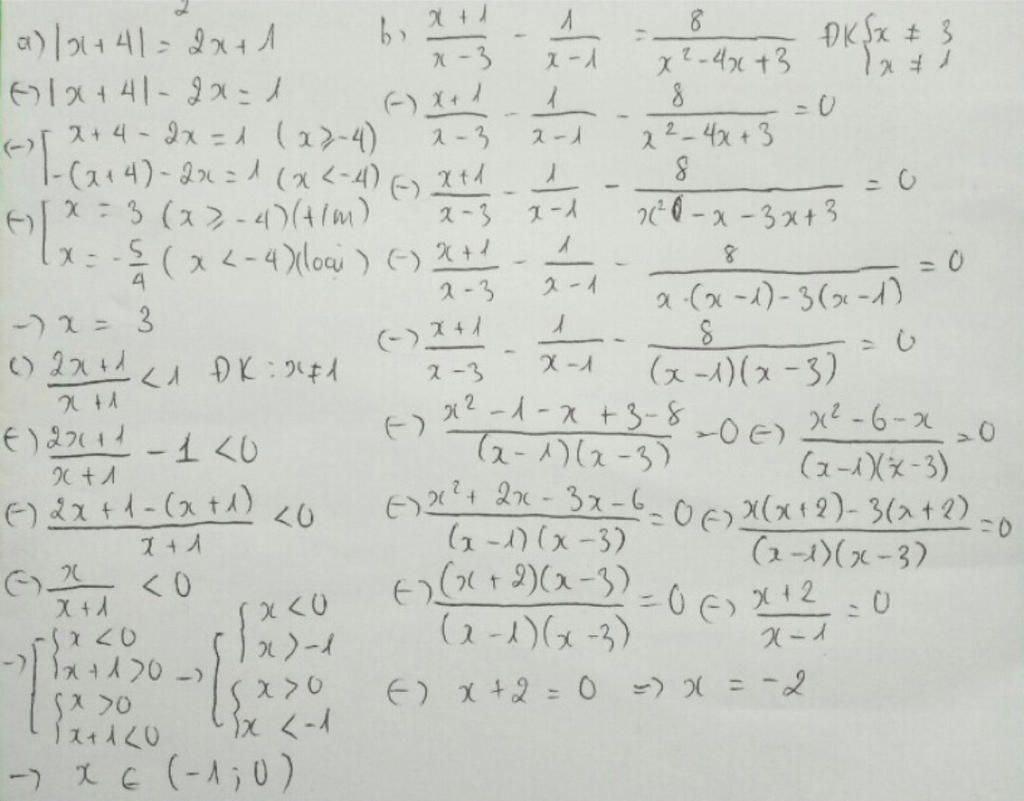 a) |x+4| = 2x+1
(-) |x+4| - 2x = 1
(-) [ x+4-2x = 1 (x ≥ -4)
-(x+4) - 2x = 1 (x < -4)
(-) [ x = 3 (x ≥ -4) (t/m)
x = -5/4 (x < -4) (loại)
-) x = 3
c) (2x+1)/(x+1) < 1 ĐK: x ≠ 1
(-) (2x+1)/(x+1) - 1 < 0
(-) (2x+1-(x+1))/(x+1) < 0
(-) x/(x+1) < 0
-) [ { x < 0
x+1 > 0
{ x > 0
x+1 < 0
-) [ { x < 0
x > -1
{ x > 0
x < -1
-) x ∈ (-1; 0)
b, (x+1)/(x-3) - 1/(x-1) = 8/(x²-4x+3) ĐK { x ≠ 3
x ≠ 1
(-) (x+1)/(x-3) - 1/(x-1) - 8/(x²-4x+3) = 0
(-) (x+1)/(x-3) - 1/(x-1) - 8/(x²-x-3x+3) = 0
(-) (x+1)/(x-3) - 1/(x-1) - 8/(x.(x-1)-3(x-1)) = 0
(-) (x+1)/(x-3) - 1/(x-1) - 8/((x-1)(x-3)) = 0
(-) (x²-1-x+3-8)/((x-1)(x-3)) = 0 (-) (x²-6-x)/((x-1)(x-3)) = 0
(-) (x²+2x-3x-6)/((x-1)(x-3)) = 0 (-) (x(x+2)-3(x+2))/((x-1)(x-3)) = 0
(-) ((x+2)(x-3))/((x-1)(x-3)) = 0 (-) (x+2)/(x-1) = 0
(-) x+2 = 0 => x = -2